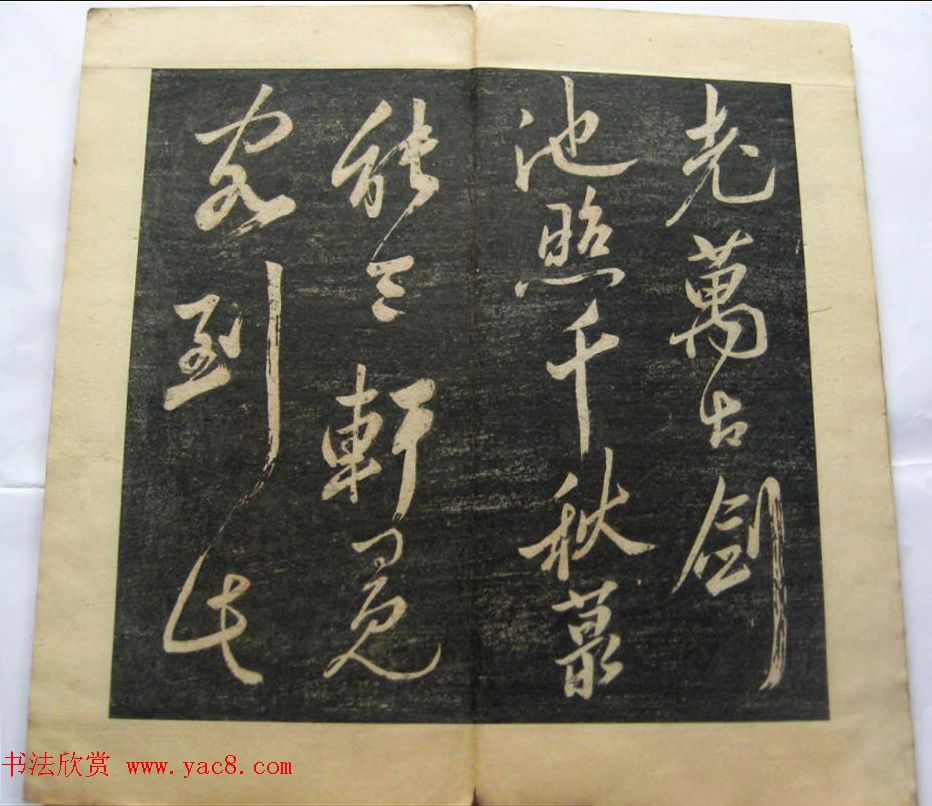 老萬古劍
池照千秋最
能令軒冕
客到此
书法欣赏 www.yac8.com